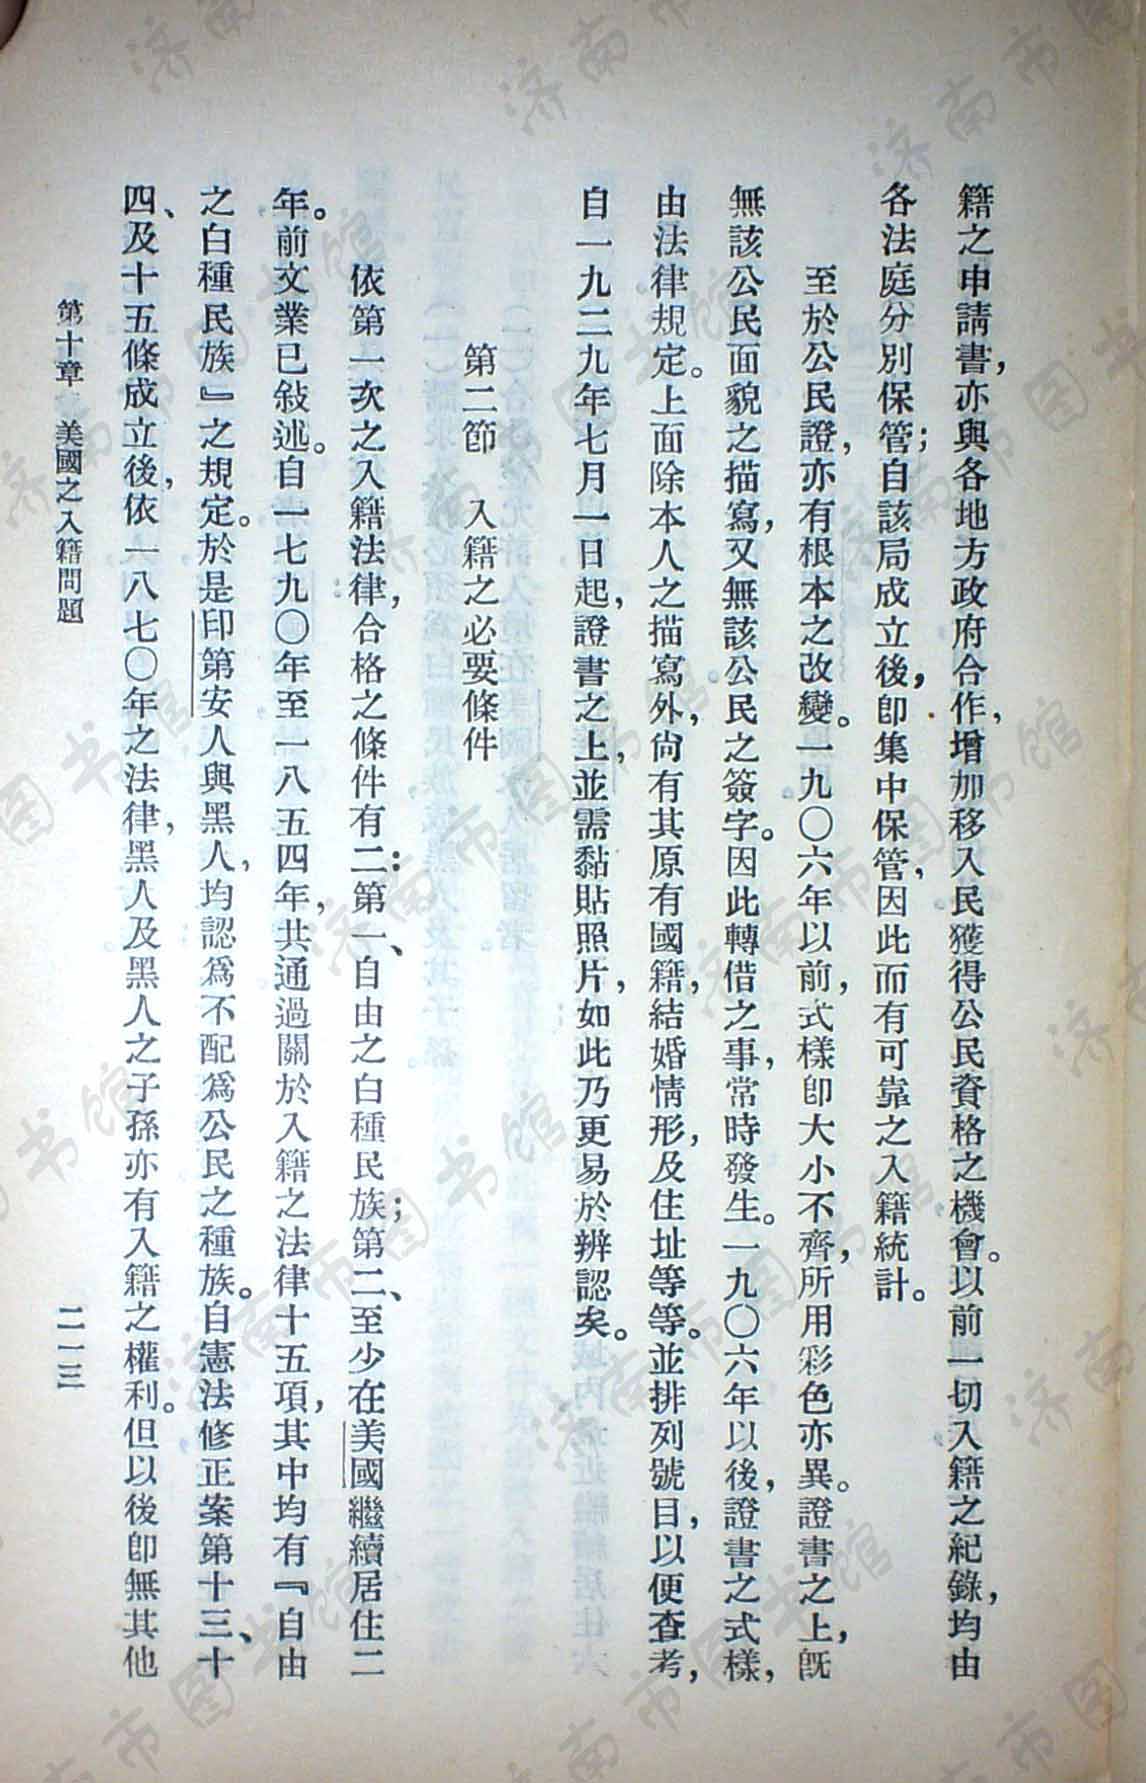 籍之申請書，亦與各地方政府合作，增加移入民獲得公民資格之機會。以前一切入籍之紀錄，均由
各法庭分別保管；自該局成立後，卽集中保管，因此而有可靠之入籍統計。
至於公民證，亦有根本之改變。一九〇六年以前，式樣卽大小不齊，所用彩色亦異。證書之上，旣
無該公民面貌之描寫，又無該公民之簽字。因此轉借之事，常時發生。一九〇六年以後，證書之式樣，
由法律規定。上面除本人之描寫外，尙有其原有國籍，結婚情形，及住址等等。並排列號目，以便查考，
自一九二九年七月一日起，證書之上，並需黏貼照片，如此乃更易於辨認矣。
第二節　入籍之必要條件
依第一次之入籍法律，合格之條件有二：第一、自由之白種民族；第二、至少在美國繼續居住二
年。前文業已敍述。自一七九〇年至一八五四年，共通過關於入籍之法律十五項，其中均有『自由
之白種民族』之規定。於是印第安人與黑人，均認爲不配爲公民之種族。自憲法修正案第十三、十
四、及十五條成立後，依一八七〇年之法律，黑人及黑人之子孫亦有入籍之權利。但以後卽無其他
第十章　美國之入籍問題
二一三
济南市图书馆